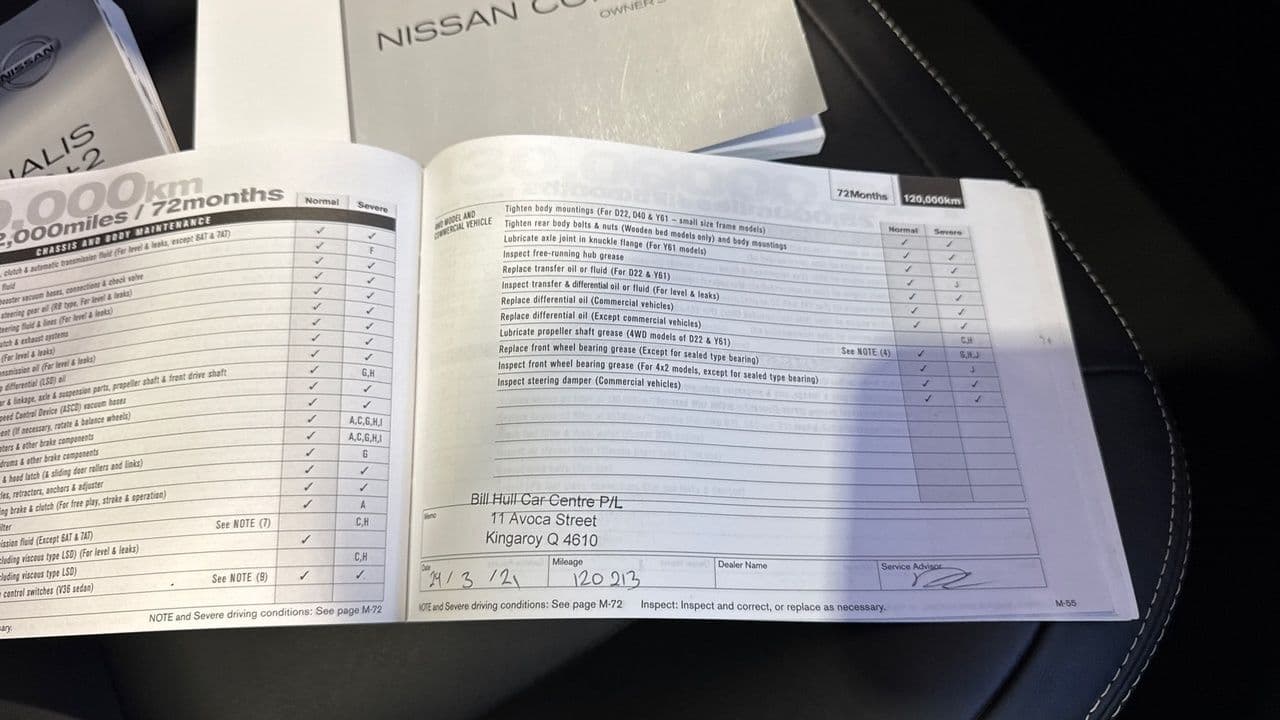 NISSAN
NISSAN
OWNER'S
IALIS
+2
,000km
2,000miles / 72months
CHASSIS AND BODY MAINTENANCE
Normal Severe
clutch & automatic transmission fluid (For level & leaks, except 6AT & 7AT) ✓ ✓
fluid ✓ F
booster vacuum hoses, connections & check valve ✓ ✓
steering gear oil (RB type, For level & leaks) ✓ ✓
steering fluid & lines (For level & leaks) ✓ ✓
& exhaust systems ✓ ✓
(For level & leaks) ✓ ✓
oil (For level & leaks) ✓ ✓
differential (LSD) oil ✓ ✓
& linkage, axle & suspension parts, propeller shaft & front drive shaft ✓ G,H
Speed Control Device (ASCD) vacuum hoses ✓ ✓
(If necessary, rotate & balance wheels) ✓ ✓
& other brake components ✓ A,C,G,H,I
drums & other brake components ✓ A,C,G,H,I
& hood latch (& sliding door rollers and links) ✓ G
retractors, anchors & adjuster ✓ ✓
brake & clutch (For free play, stroke & operation) ✓ ✓
A
See NOTE (7) C,H
fluid (Except 6AT & 7AT) ✓
viscous type LSD) (For level & leaks)
viscous type LSD) C,H
control switches (V36 sedan) See NOTE (9) ✓ ✓
NOTE and Severe driving conditions: See page M-72
72Months 120,000km
Normal Severe
MODEL AND
COMMERCIAL VEHICLE
Tighten body mountings (For D22, D40 & Y61 – small size frame models) ✓ ✓
Tighten rear body bolts & nuts (Wooden bed models only) and body mountings ✓ ✓
Lubricate axle joint in knuckle flange (For Y61 models) ✓ ✓
Inspect free-running hub grease ✓ J
Replace transfer oil or fluid (For D22 & Y61) ✓ ✓
Inspect transfer & differential oil or fluid (For level & leaks) ✓ ✓
Replace differential oil (Commercial vehicles) ✓ ✓
Replace differential oil (Except commercial vehicles) C,H
Lubricate propeller shaft grease (4WD models of D22 & Y61) See NOTE (4) ✓ G,H,J
Replace front wheel bearing grease (Except for sealed type bearing) ✓ J
Inspect front wheel bearing grease (For 4x2 models, except for sealed type bearing) ✓ ✓
Inspect steering damper (Commercial vehicles) ✓ ✓
Memo
Bill Hull Car Centre P/L
11 Avoca Street
Kingaroy Q 4610
Date Mileage Dealer Name Service Advisor
24/3/21 120 213
NOTE and Severe driving conditions: See page M-72 Inspect: Inspect and correct, or replace as necessary.
M-55